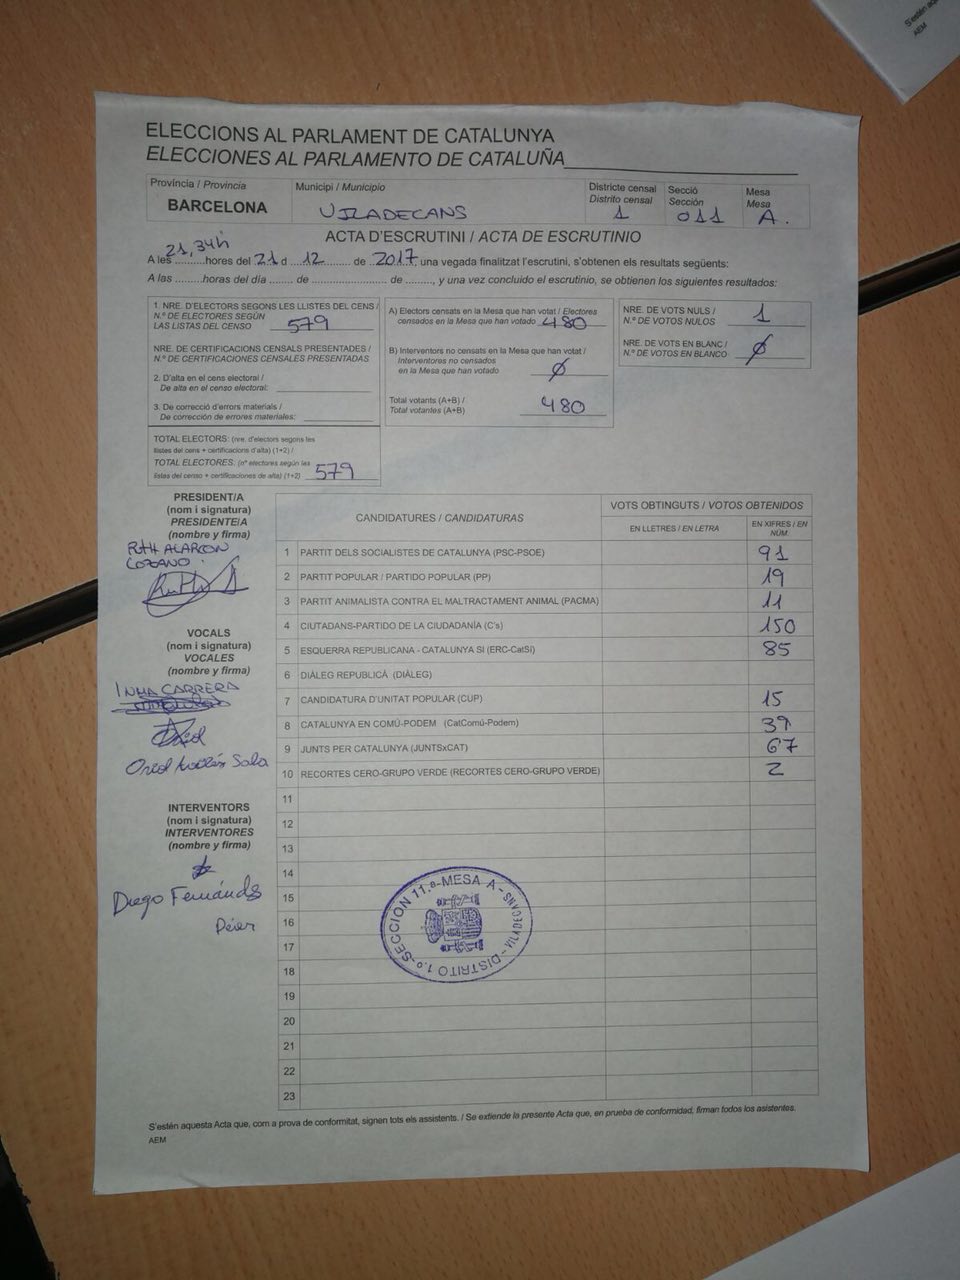 S'estén aqu
AEM
ELECCIONS AL PARLAMENT DE CATALUNYA
ELECCIONES AL PARLAMENTO DE CATALUÑA
Província / Provincia
BARCELONA
Municipi / Municipio
VILADECANS
Districte censal
Distrito censal
1
Secció
Sección
011
Mesa
Mesa
A.
ACTA D'ESCRUTINI / ACTA DE ESCRUTINIO
A les 21,34h hores del 21 d 12 de 2017, una vegada finalitzat l'escrutini, s'obtenen els resultats següents:
A las ......... horas del día ....... de ........................ de ........., y una vez concluido el escrutinio, se obtienen los siguientes resultados:
1. NRE. D'ELECTORS SEGONS LES LLISTES DEL CENS /
N.º DE ELECTORES SEGÚN
LAS LISTAS DEL CENSO 579
NRE. DE CERTIFICACIONS CENSALS PRESENTADES /
N.º DE CERTIFICACIONES CENSALES PRESENTADAS
2. D'alta en el cens electoral /
De alta en el censo electoral:
3. De correcció d'errors materials /
De corrección de errores materiales:
TOTAL ELECTORS: (nre. d'electors segons les
llistes del cens + certificacions d'alta) (1+2) /
TOTAL ELECTORES: (nº electores según las
listas del censo + certificaciones de alta) (1+2) 579
A) Electors censats en la Mesa que han votat / Electores
censados en la Mesa que han votado 480
B) Interventors no censats en la Mesa que han votat /
Interventores no censados
en la Mesa que han votado Ø
Total votants (A+B) /
Total votantes (A+B) 480
NRE. DE VOTS NULS /
N.º DE VOTOS NULOS 1
NRE. DE VOTS EN BLANC /
N.º DE VOTOS EN BLANCO Ø
PRESIDENT/A
(nom i signatura)
PRESIDENTE/A
(nombre y firma)
RUTH ALARCON
LOZANO
VOCALS
(nom i signatura)
VOCALES
(nombre y firma)
INMA CARRERA
Oriol Sala
INTERVENTORS
(nom i signatura)
INTERVENTORES
(nombre y firma)
Diego Fernández
CANDIDATURES / CANDIDATURAS
VOTS OBTINGUTS / VOTOS OBTENIDOS
EN LLETRES / EN LETRA
EN XIFRES / EN
NÚM.
1 PARTIT DELS SOCIALISTES DE CATALUNYA (PSC-PSOE) 91
2 PARTIT POPULAR / PARTIDO POPULAR (PP) 19
3 PARTIT ANIMALISTA CONTRA EL MALTRACTAMENT ANIMAL (PACMA) 11
4 CIUTADANS-PARTIDO DE LA CIUDADANÍA (C's) 150
5 ESQUERRA REPUBLICANA - CATALUNYA SÍ (ERC-CatSí) 85
6 DIÀLEG REPUBLICÀ (DIÀLEG)
7 CANDIDATURA D'UNITAT POPULAR (CUP) 15
8 CATALUNYA EN COMÚ-PODEM (CatComú-Podem) 39
9 JUNTS PER CATALUNYA (JUNTSxCAT) 67
10 RECORTES CERO-GRUPO VERDE (RECORTES CERO-GRUPO VERDE) 2
11
12
13
14
15
16
17
18
19
20
21
22
23
DISTRITO 1.º-SECCION 11.ª-MESA A - VILADECANS -
S'estén aquesta Acta que, com a prova de conformitat, signen tots els assistents. / Se extiende la presente Acta que, en prueba de conformidad, firman todos los asistentes.
AEM